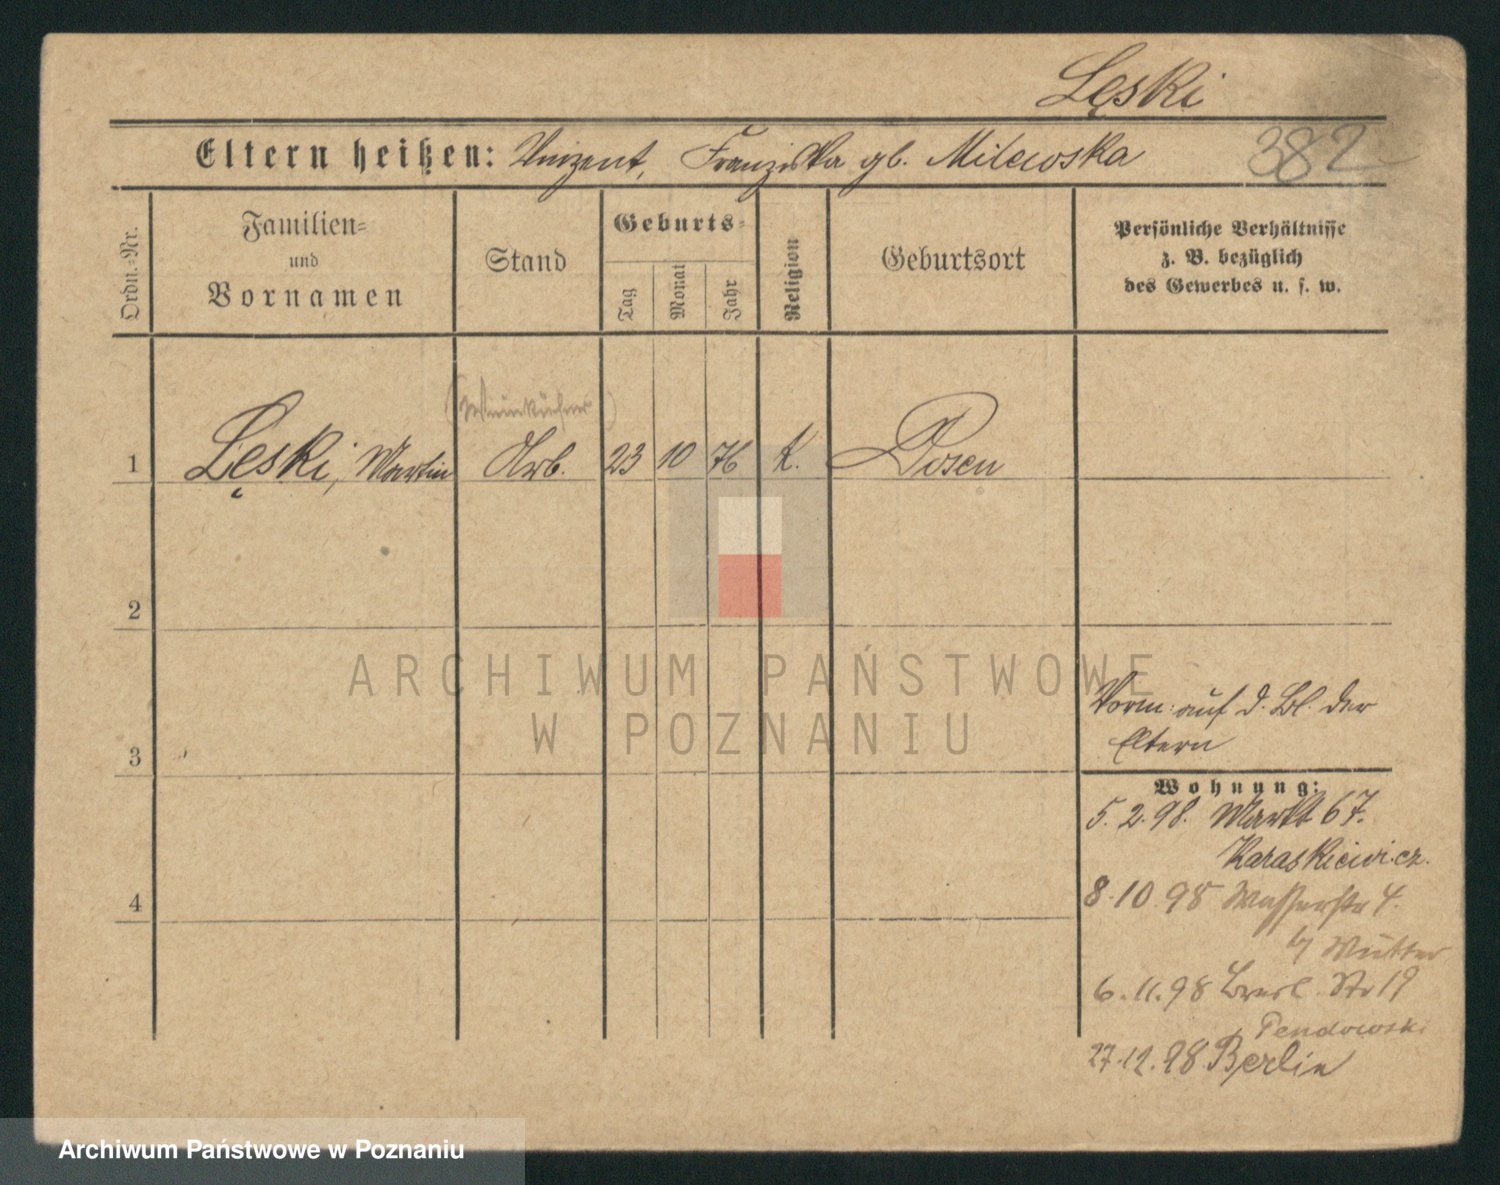 Lęski
Eltern heißen: Vinzent, Franziska gb. Milewska
382
Ordn.-Nr.
Familien-
und
Vornamen
Stand
Geburts-
Tag
Monat
Jahr
Religion
Geburtsort
Persönliche Verhältnisse
z. B. bezüglich
des Gewerbes u. s. w.
1 Lęski, Martin Arb. 23 10 76 k. Posen
2
3
4
Vorm: auf d. Bl. der
Eltern
Wohnung:
5. 2. 98. Markt 67.
Karaskiewicz.
8. 10. 98 Wasserstr 4.
b/ Mutter
6. 11. 98 Bresl. Str 19
Pendowski
27. 12. 98 Berlin
ARCHIWUM PAŃSTWOWE
W POZNANIU
Archiwum Państwowe w Poznaniu